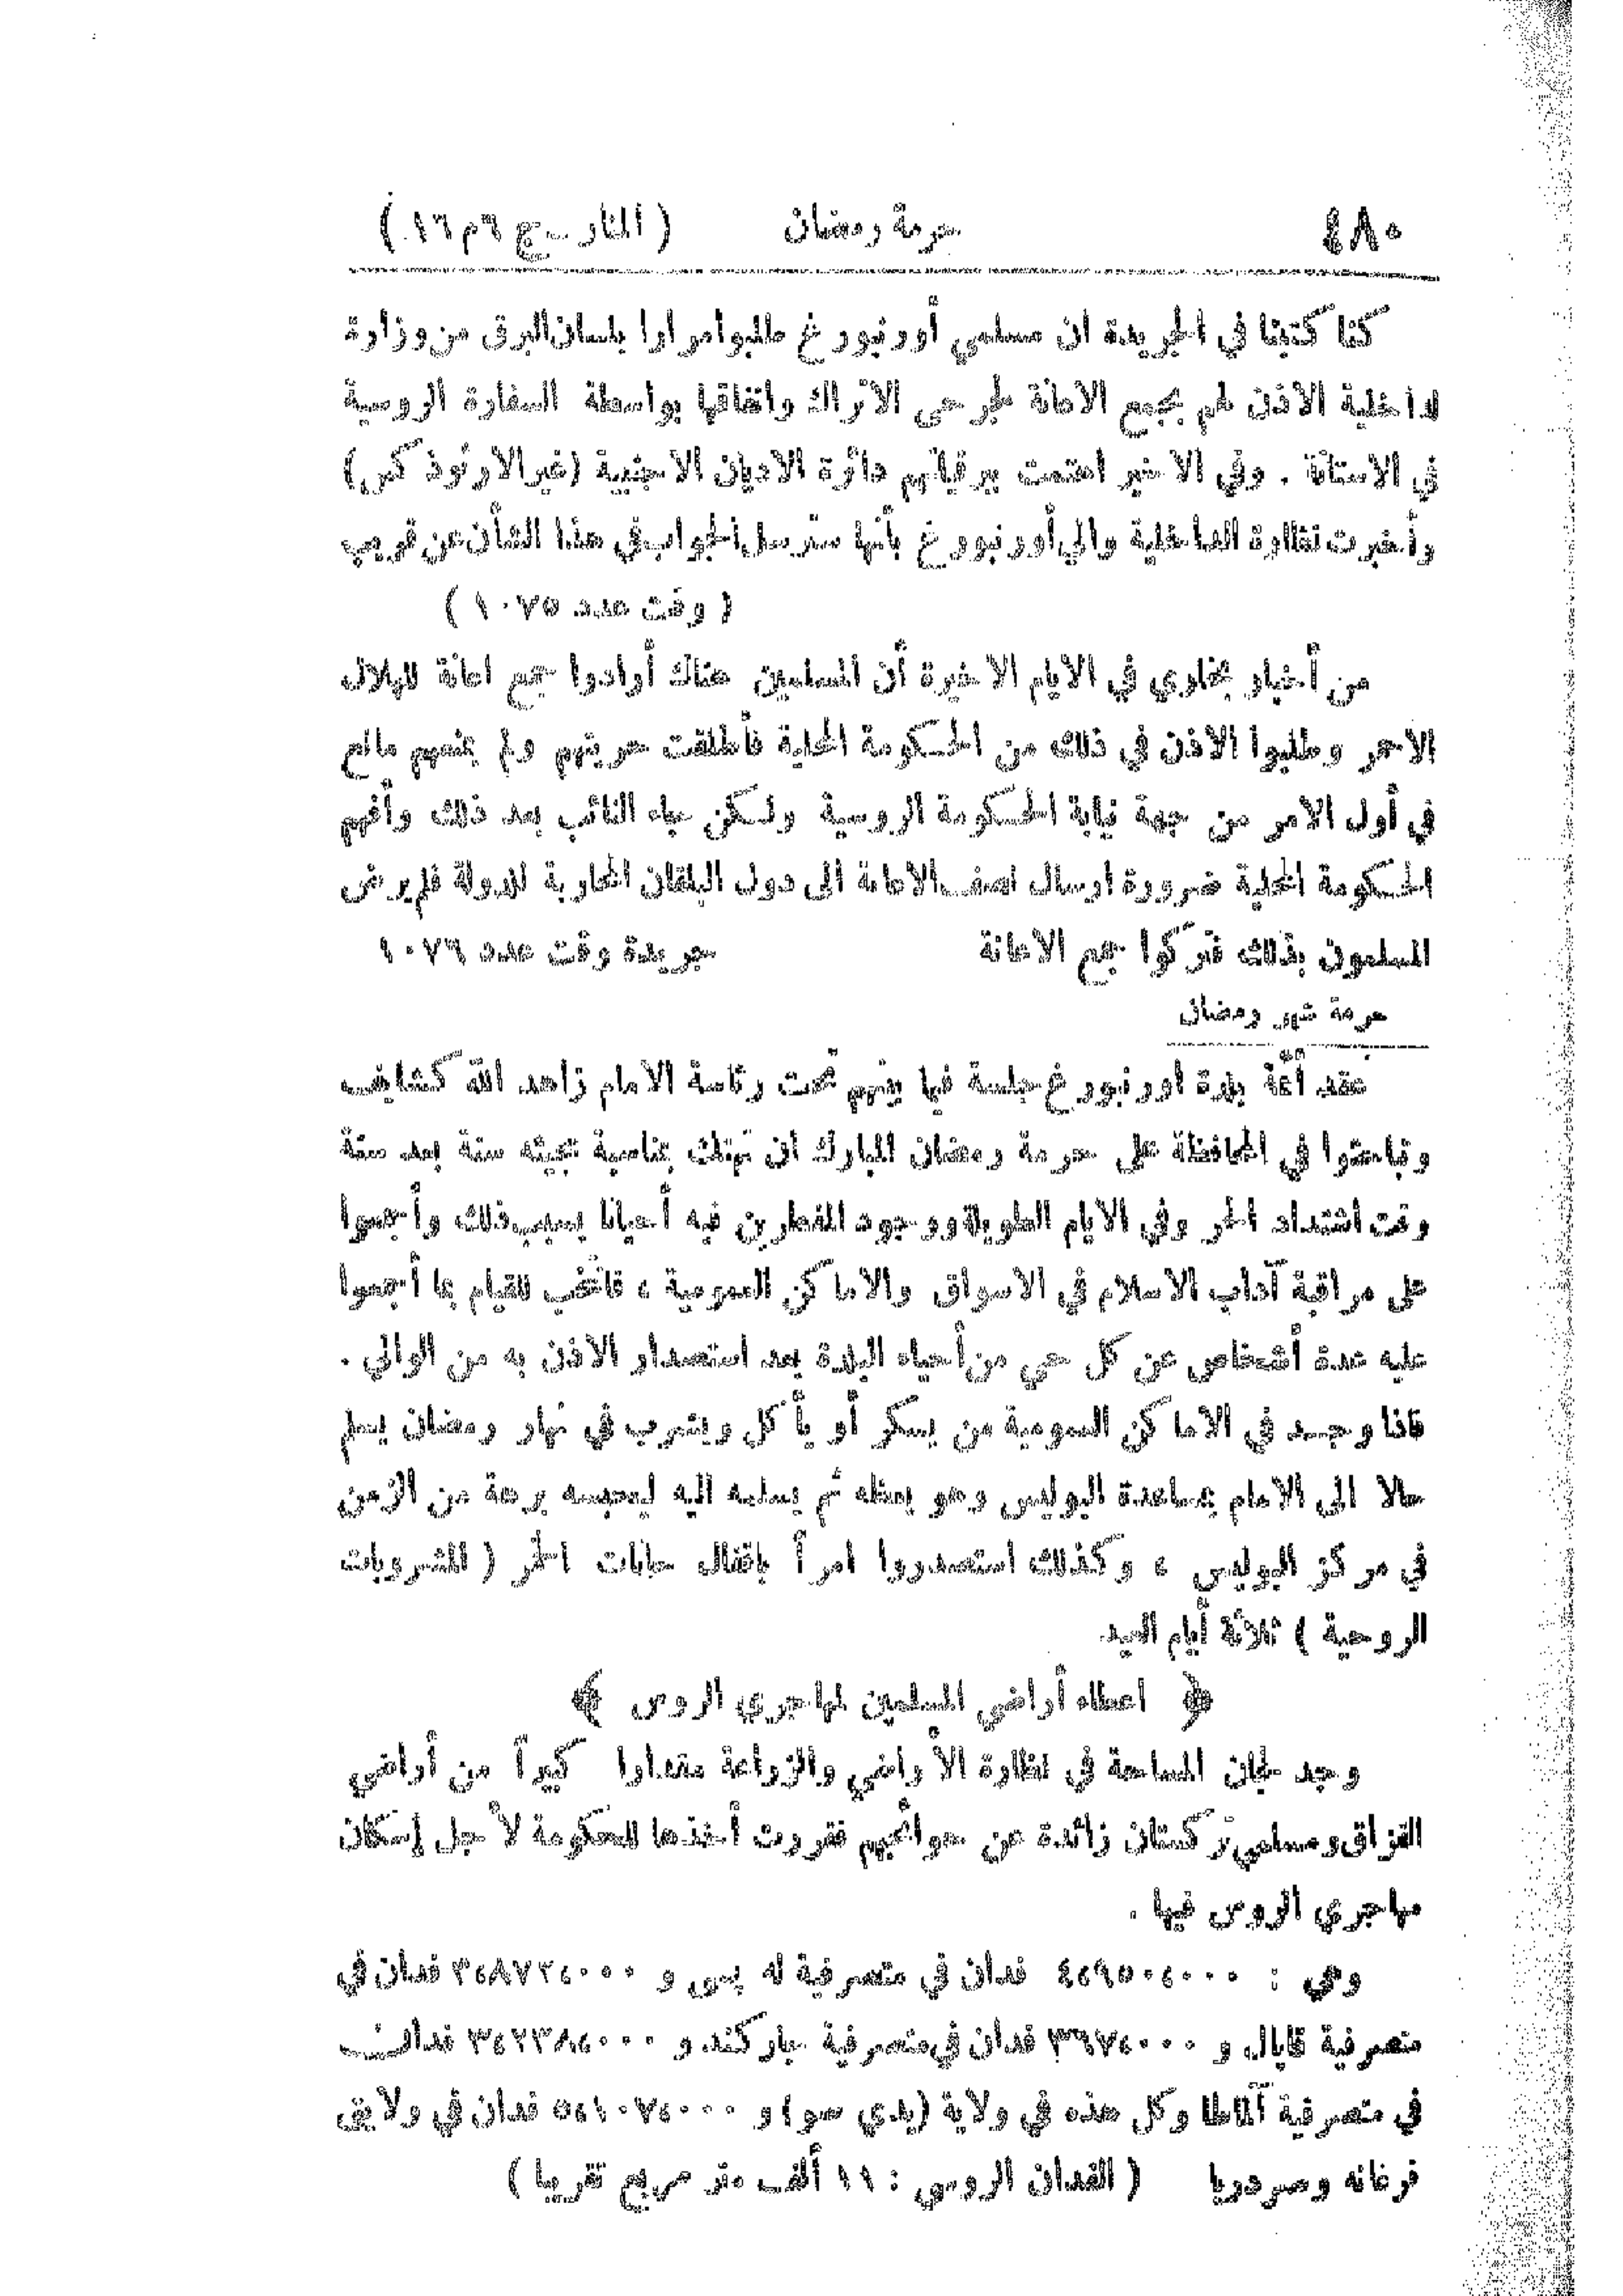 ٤٨٠ حرمة رمضان ( المنار ـ ج ٦ م ١٦ )
كنا كتبنا في الجريدة ان مسلمي أورنبورغ طلبوا مرارا بلسان البرق من وزارة
الداخلية الاذن لهم بجمع الاعانة لجرحى الاتراك وانفاقها بواسطة السفارة الروسية
في الاستانة . وفي الاخير اهتمت ببرقياتهم دائرة الاديان الاجنبية (غير الارثوذكس)
وأخبرت نظارة الداخلية والي أورنبورغ بأنها سترسل الجواب في هذا الشأن عن قريب
( وقت عدد ١٠٧٥ )
من أخبار بخارى في الايام الاخيرة أن المسلمين هناك أرادوا جمع اعانة للهلال
الاحمر وطلبوا الاذن في ذلك من الحكومة المحلية فأطلقت حريتهم ولم يمنعهم مانع
في أول الامر من جهة نيابة الحكومة الروسية ولكن جاء النائب بعد ذلك وأفهم
الحكومة المحلية ضرورة ارسال نصف الاعانة الى دول البلقان المحاربة للدولة فلم يرض
المسلمون بذلك فتركوا جمع الاعانة جريدة وقت عدد ١٠٧٦
حرمة شهر رمضان
عقد أئمة بلدة اورنبورغ جلسة فيما بينهم تحت رئاسة الامام زاهد الله كشايف
وتباحثوا في المحافظة على حرمة رمضان المبارك ان تهتك بمناسبة مجيئه سنة بعد سنة
وقت اشتداد الحر وفي الايام الطويلة ووجود المفطرين فيه أحيانا بسبب ذلك وأجمعوا
على مراقبة آداب الاسلام في الاسواق والاماكن العمومية ، فانتخب للقيام بما أجمعوا
عليه عدة أشخاص عن كل حي من أحياء البلدة بعد استصدار الاذن به من الوالي .
فاذا وجد في الاماكن العمومية من يسكر أو يأكل ويشرب في نهار رمضان يسلم
حالا الى الامام بمساعدة البوليس وهو يعظه ثم يسلمه اليه ليحبسه برهة من الزمن
في مركز البوليس ، وكذلك استصدروا امرأ باقفال حانات الخمر ( المشروبات
الروحية ) ثلاثة أيام العيد
﴿ اعطاء أراضي المسلمين لمهاجري الروس ﴾
وجد لجان المساحة في نظارة الأراضي والزراعة مقدارا كبيراً من أراضي
القزاق ومسلمي تركستان زائدة عن حوائجهم فقررت أخذها للحكومة لأجل إسكان
مهاجري الروس فيها .
وهي : ٤٤٩٥٠٤٠٠٠ فدان في متصرفية له بسى و ٣٤٨٧٢٤٠٠٠ فدان في
متصرفية قابال و ٣٦٧٤٠٠٠ فدان في متصرفية جاركند و ٣٤٢٣٨٤٠٠٠ فدان
في متصرفية آلماطا وكل هذه في ولاية (يدي صو) و ٥٤١٠٧٤٠٠٠ فدان في ولايتى
فرغانه وسردريا ( الفدان الروسي : ١١ ألف متر مربع تقريبا )